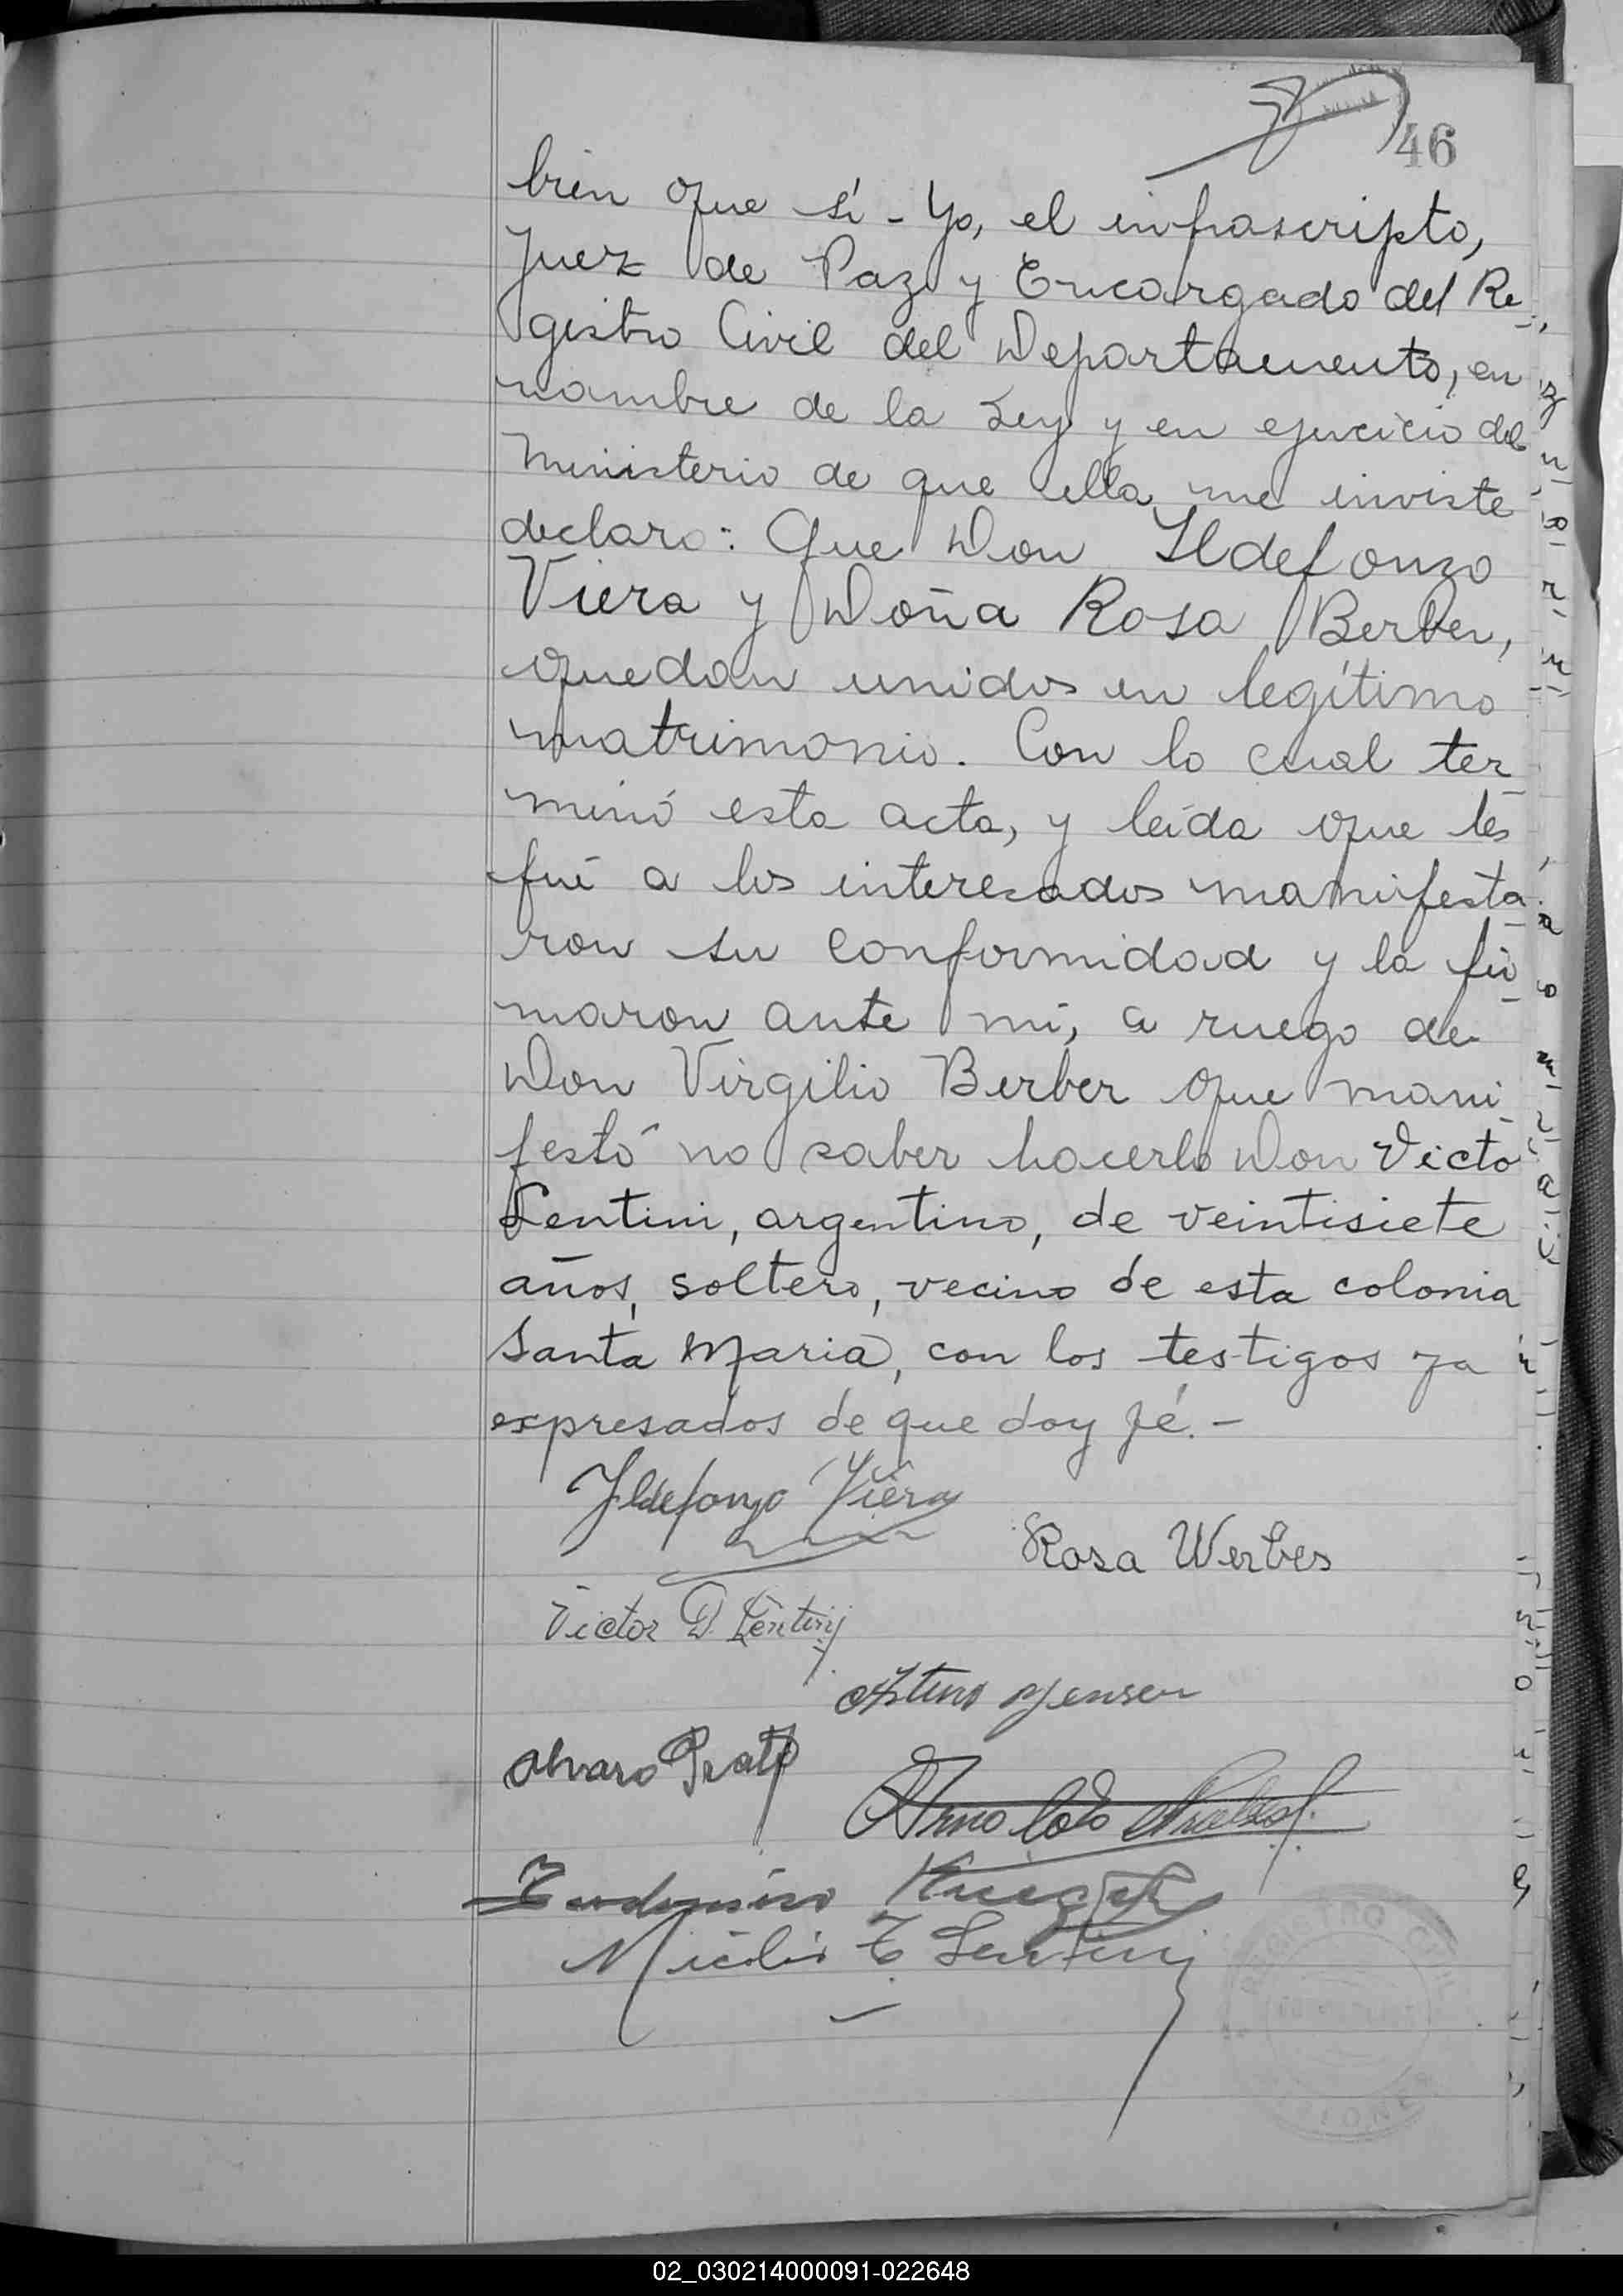 46
bien que sí - Yo, el infrascripto,
Juez de Paz y Encargado del Re-
gistro Civil del Departamento, en
nombre de la Ley y en ejercicio del
Ministerio de que ella me inviste
declaro: Que Don Ildefonzo
Viera y Doña Rosa Berber,
quedan unidos en legítimo
matrimonio. Con lo cual ter-
minó esta acta, y leída que les
fué a los interesados manifesta-
ron su conformidad y la fir-
maron ante mí, a ruego de
Don Virgilio Berber que mani-
festó no saber hacerlo Don Victo
Lentini, argentino, de veintisiete
años, soltero, vecino de esta colonia
Santa Maria, con los testigos ya
expresados de que doy fé. -
Ildefonzo Viera
Rosa Werbes
Victor D. Lentini
Arturo Jensen
Alvaro Prat
Arnoldo
Krieger
Lentini
REGISTRO CIVIL
02_030214000091-022648